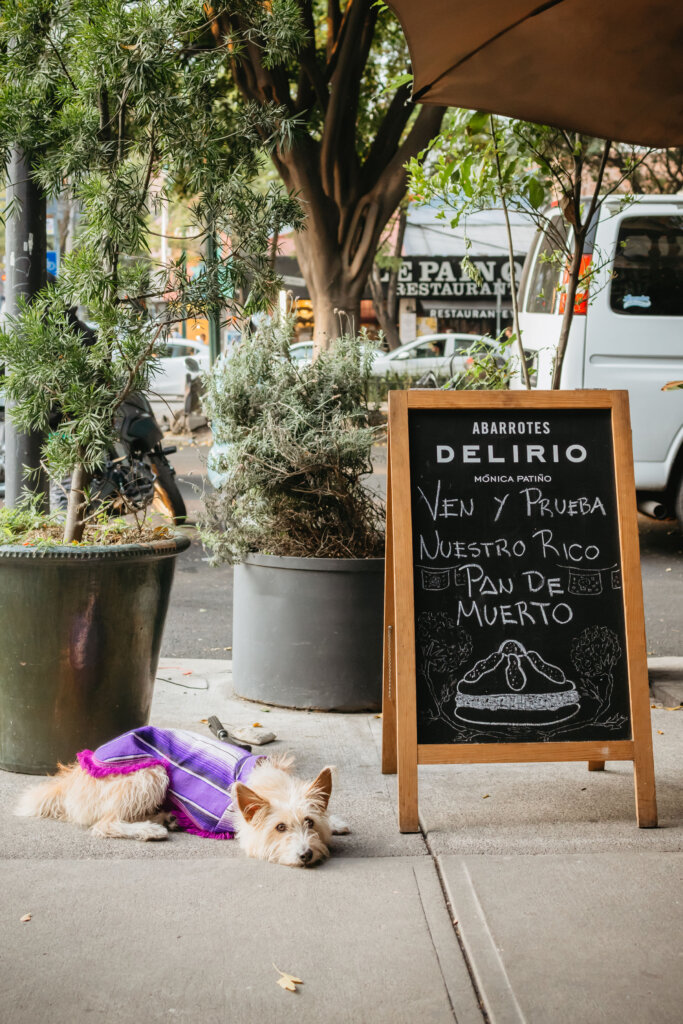 RESTAURANT
RESTAURANTE
ABARROTES
DELIRIO
MÓNICA PATIÑO
VEN Y PRUEBA
NUESTRO RICO
PAN DE
MUERTO